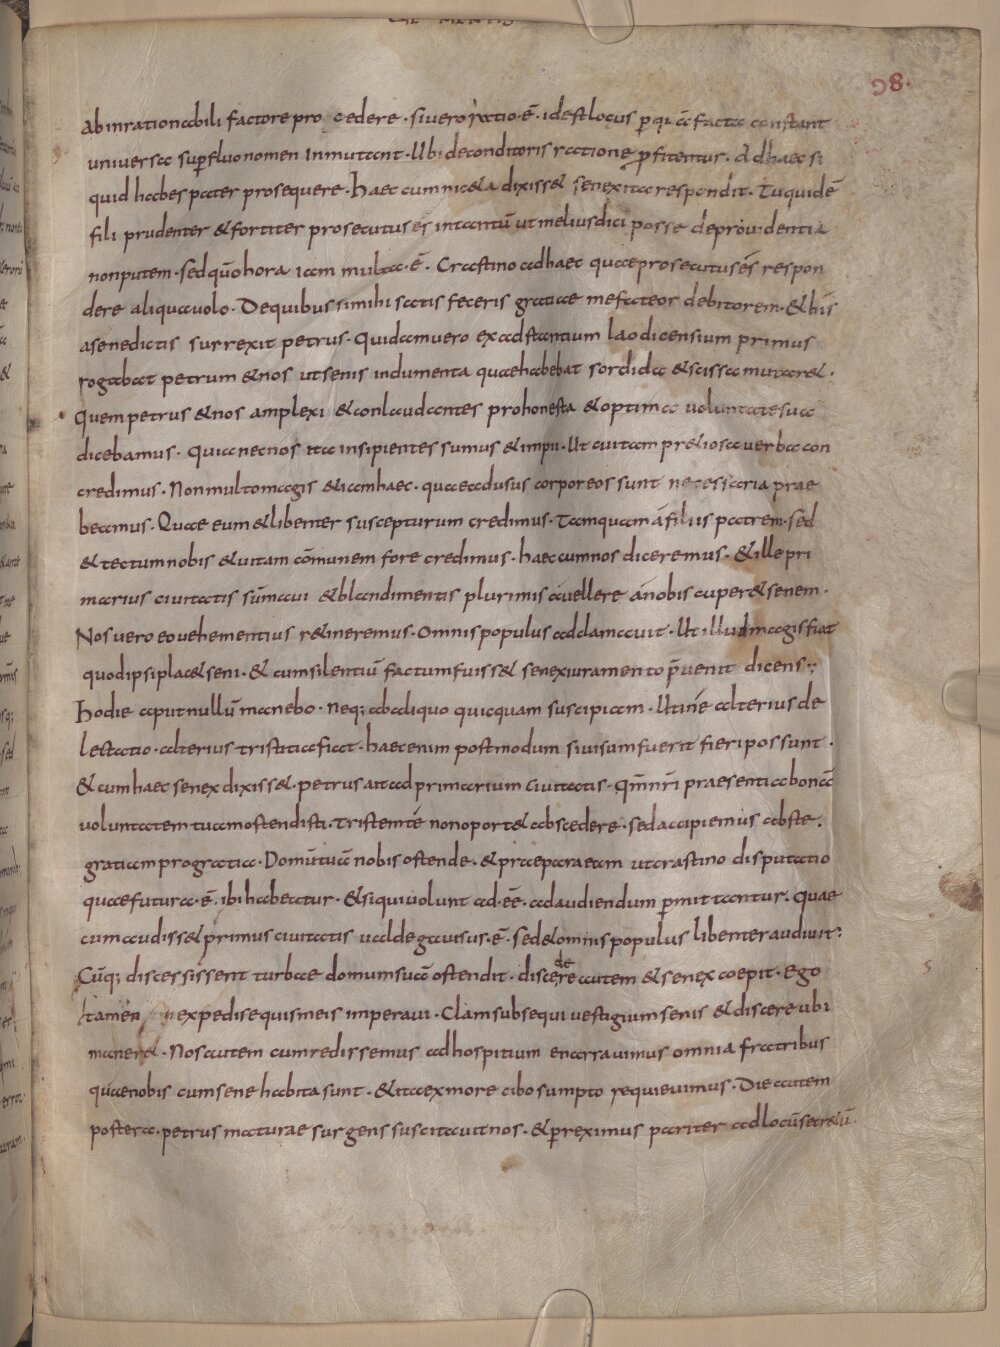 98.
ab inrationabili factore pro cedere · siuero ratio · ē · idest locus p̱ quē facta constant
uniuersa sup̱fluo nomen inmutant · Ubi deconditoris ratione p̱fitentur · ad haec si
quid habes pater prosequere · haec cum nicæta dixiss& senex ita respondit · Tu quidē
fili prudenter & fortiter prosecutus es intantū ut melius dici posse deprouidentia
non putem · sed quō hora iam multa · ē · Crastino ad haec quae prosecutus és respon
dere aliqua uolo · De quibus si mihi satis feceris gratiae me fateor debitorem · & his
a sene dictis surrexit petrus · Quidam uero ex adstantium laodicensium primus
rogabat petrum & nos ut senis indumenta quae habebat sordida & scissa mutar& ·
Quem petrus & nos amplexi & conlaudantes pro honesta & optima uoluntate sua
dicebamus · Quia nec nos ita insipientes sumus & impii · Ut cui tam pr&iosa uerba con
credimus · Non multo magis & iam haec · quae ad usus corporeos sunt necessaria prae
beamus · Quae eum & libenter suscepturum credimus · Tamquam á filiis patrem · sed
& tectum nobis & uitam cōmunem fore credimus · haec cum nos diceremus · & ille pri
marius ciuitatis sūma ui & blandimentis plurimis áuellere á nobis cuper& senem ·
Nos uero eo uehementius r&ineremus · Omnis populus adclamauit · Ut illud magis fiat
quod ipsi plac& seni · & cum silentiū factum fuiss& senex iuramento p̄uenit dicens ·;
hodie aput nullū manebo · neq; ab aliquo quicquam suscipiam · Ut ińe alterius de
lectatio · alterius tristitia fiat · haec enim postmodum si uisum fuerit fieri possunt ·
& cum haec senex dixiss& · petrus ait ad primarium ciuitatis · Qm̄ nr̄i praesentia bonā
uoluntatem tuam ostendisti · tristem té non oport& abscedere · sed accipiemus abs te ·
gratiam pro gratia · Domū tuā nobis ostende · & praepara eam ut crastino disputatio
quae futura · ē · ibi habeatur · & si qui uolunt ad · ēē · ad audiendum p̱mittantur · Quae
cum audiss& primus ciuitatis ualde gauisus · ē · sed & omnis populus libenter audiuit :
Cūq; discessissent turbae domum suā ostendit · disce de re autem & senex coepit · Ego
tamen expedisequis meis imperaui · Clam subsequi uestigium senis & discere ubi
maner& · Nos autem cum redissemus ad hospitium enarrauimus omnia fratribus
quae nobis cum sene habita sunt · & ita ex more cibo sumpto requieuimus · Die autem
postera · petrus maturae surgens suscitauit nos · & p̱reximus pariter ad locū secr&ū ·